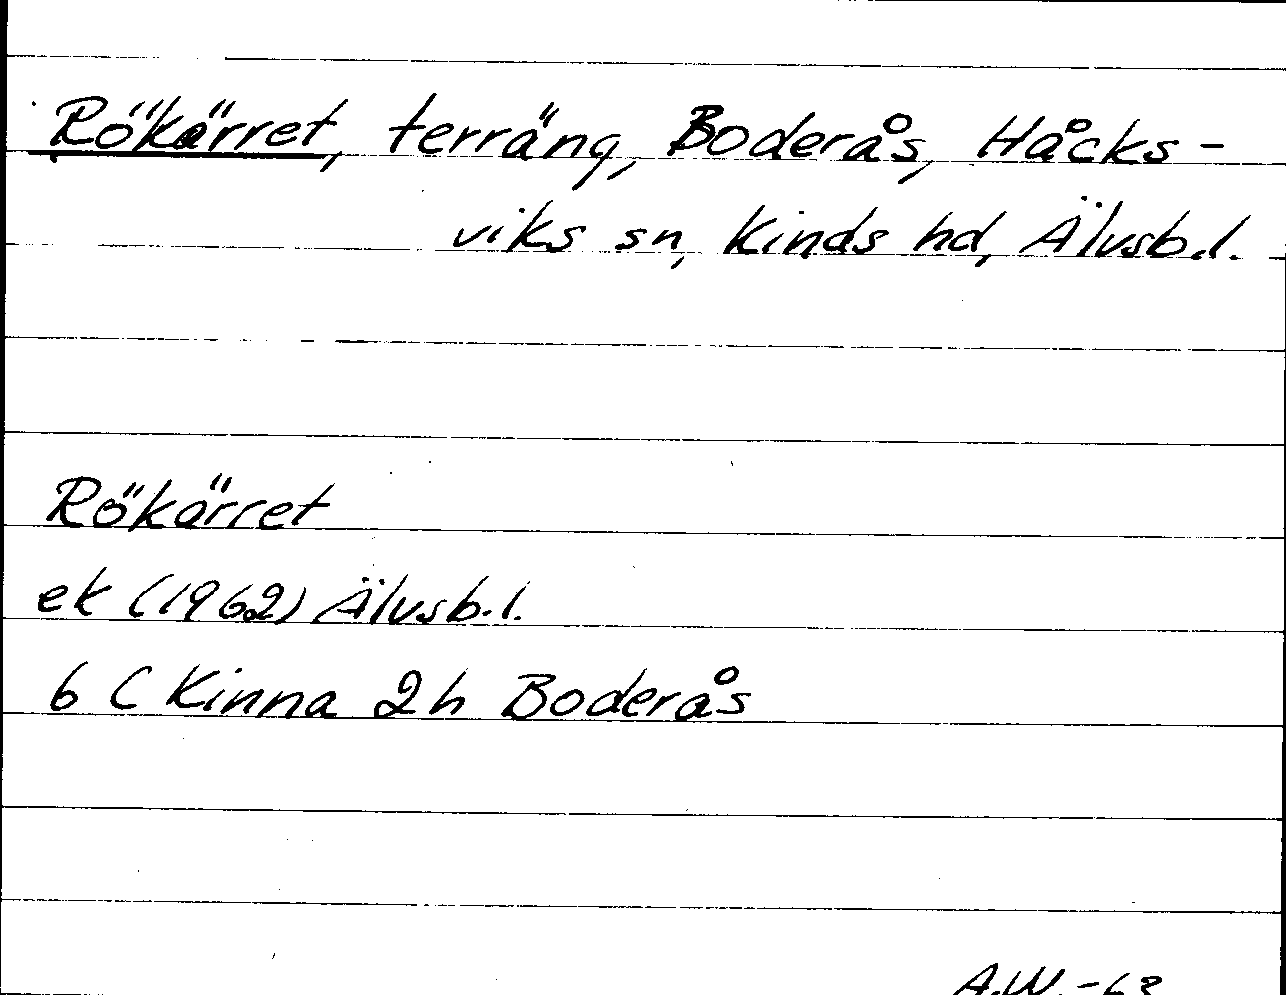 Rökärret, terräng, Boderås, Håcks-
viks sn, Kinds hd, Älvsb.l.
Rökärret
ek (1962) Älvsb.l.
6 C Kinna 2h Boderås
A.W.-63